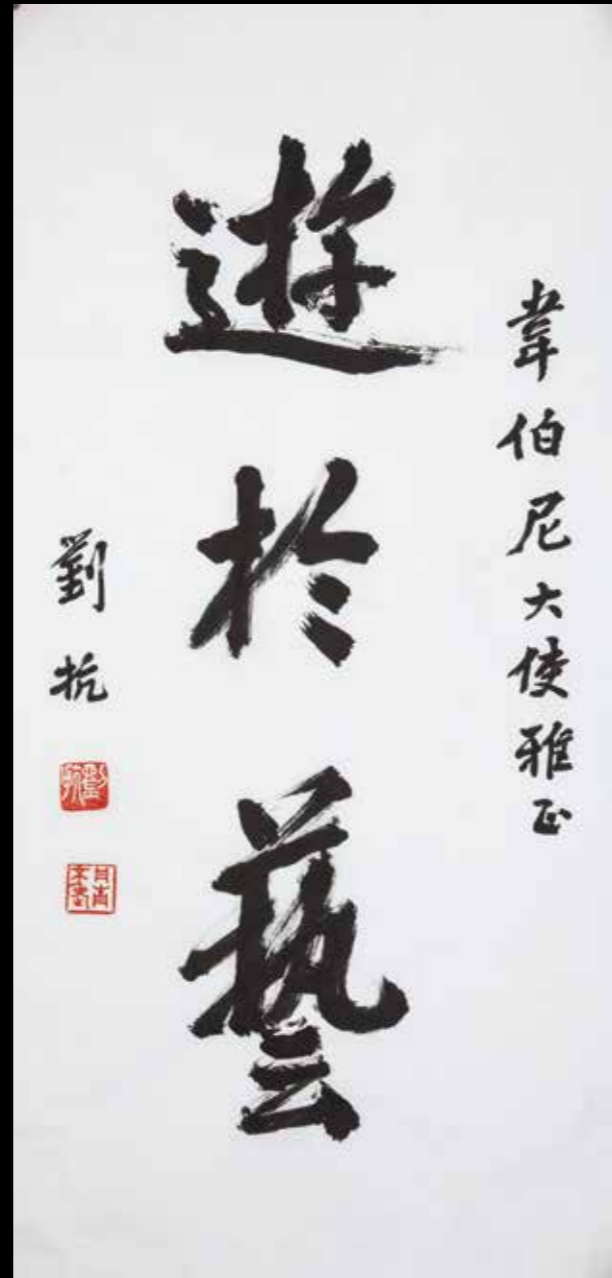 韋伯尼大使雅正
遊於藝
劉抗
劉抗